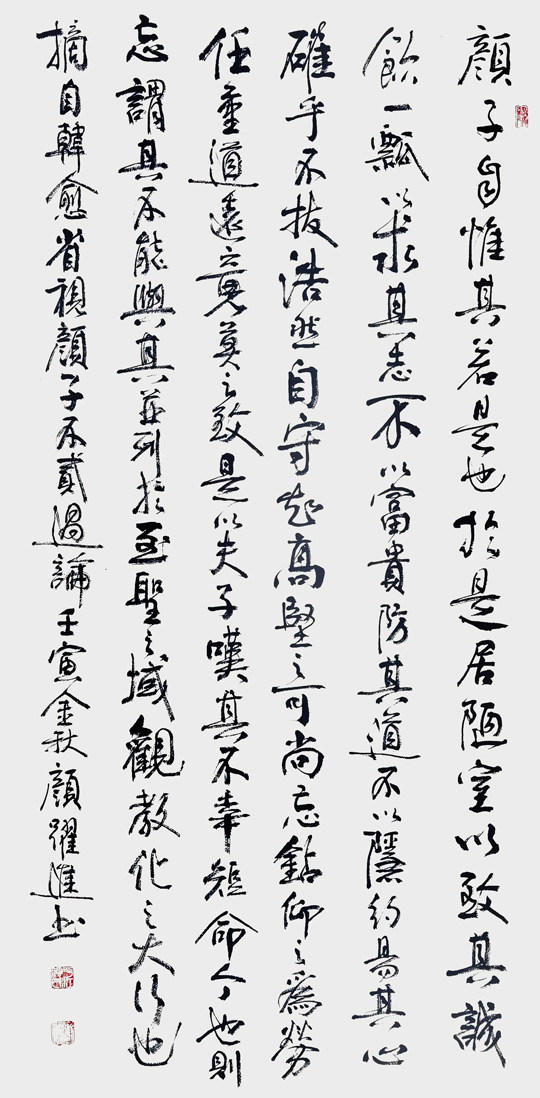 顔子自惟其若是也於是居陋室以致其誠
飲一瓢以求其志不以富貴防其道不以隱約易其心
確乎不拔浩然自守起高堅之可尚忘鉆仰之爲勞
任重道遠竟莫之致是以夫子嘆其不幸短命今也則
忘謂其不能與其並列於至聖之域觀教化之大行也
摘自韓愈省視顔子不貳過論壬寅金秋顔躍進書